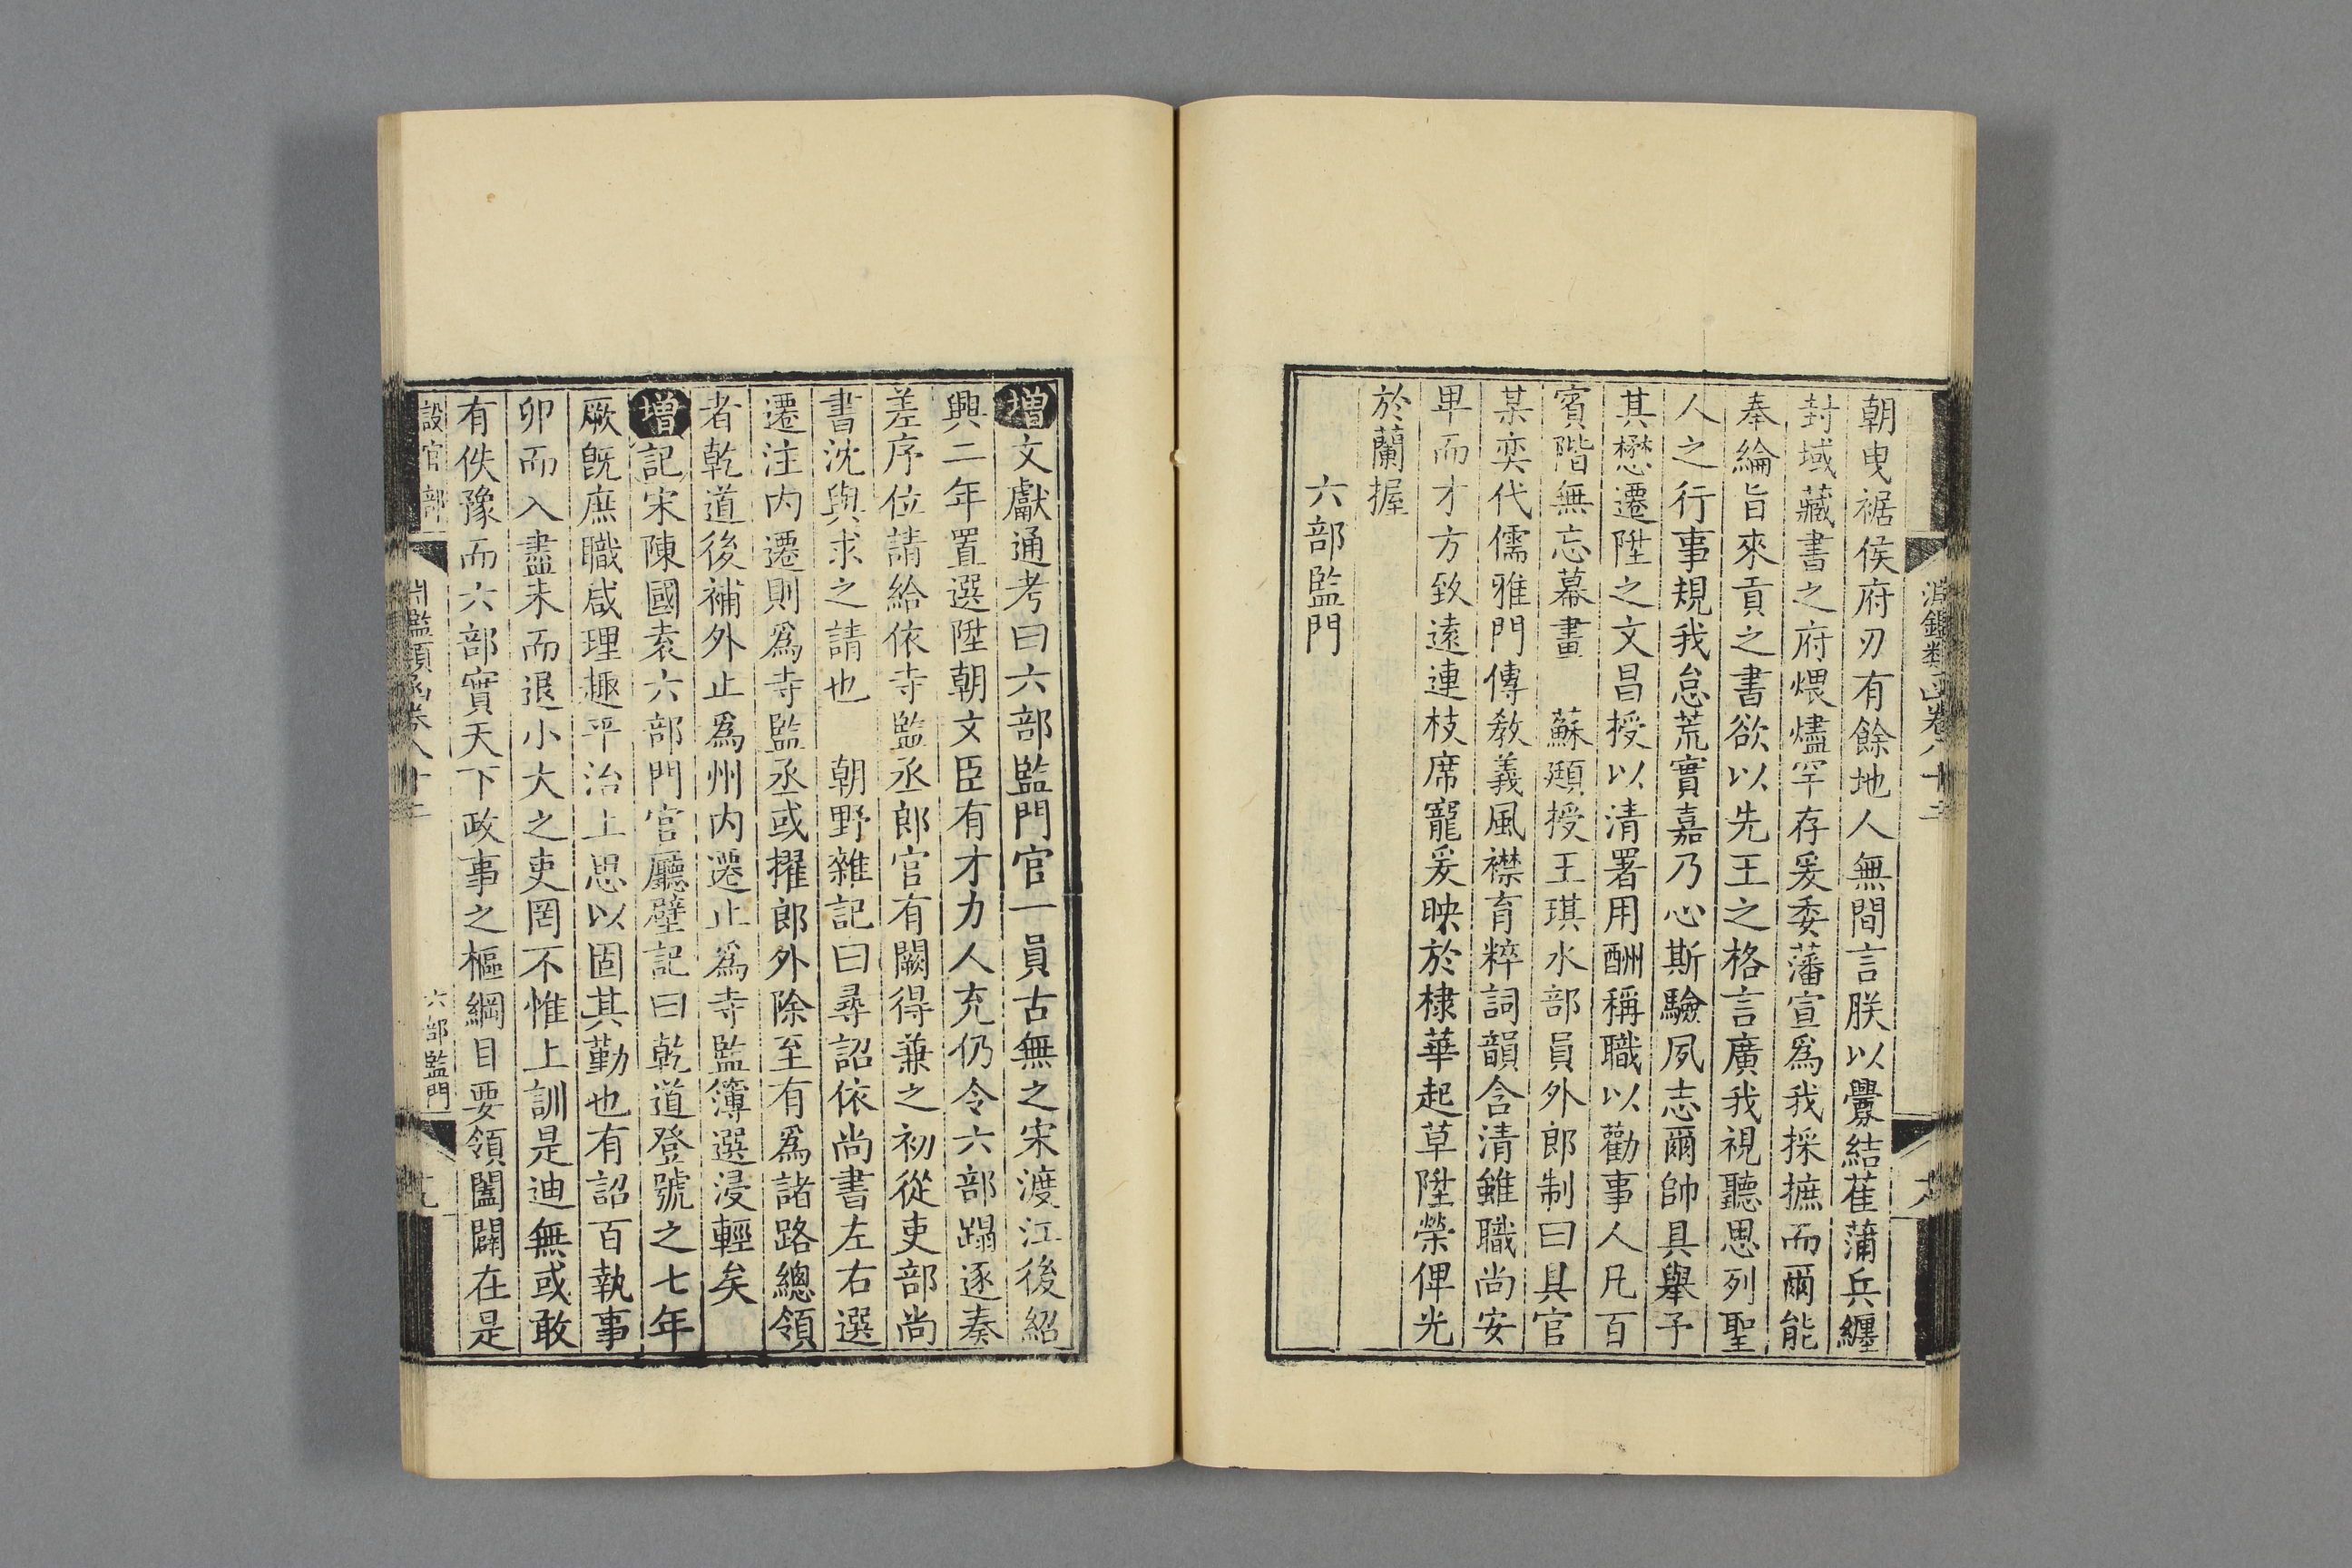 朝曳裾侯府刃有餘地人無間言朕以釁結萑蒲兵纏
封域藏書之府煨燼罕存爰委藩宣爲我採摭而爾能
奉綸旨來貢之書欲以先王之格言廣我視聽思列聖
人之行事規我怠荒實嘉乃心斯驗夙志爾帥具舉予
其懋遷陞之文昌授以清署用酬稱職以勸事人凡百
賓階無忘幕畫　蘇頲授王琪水部員外郎制曰具官
某奕代儒雅門傳教義風襟育粹詞韻含清雖職尚安
卑而才方致遠連枝席寵爰映於棣華起草陞榮俾光
於蘭握
六部監門
增文獻通考曰六部監門官一員古無之宋渡江後紹
興二年置選陞朝文臣有才力人充仍令六部蹋逐奏
差序位請給依寺監丞郎官有闕得兼之初從吏部尚
書沈與求之請也　朝野雜記曰尋詔依尚書左右選
遷注内遷則爲寺監丞或擢郎外除至有爲諸路總領
者乾道後補外止爲州内遷止爲寺監簿選浸輕矣
增記宋陳國袁六部門官廳壁記曰乾道登號之七年
厥既庶職咸理趣平治上思以固其勤也有詔百執事
卯而入盡未而退小大之吏罔不惟上訓是迪無或敢
有佚豫而六部實天下政事之樞綱目要領闔闢在是
設官部
六部監門